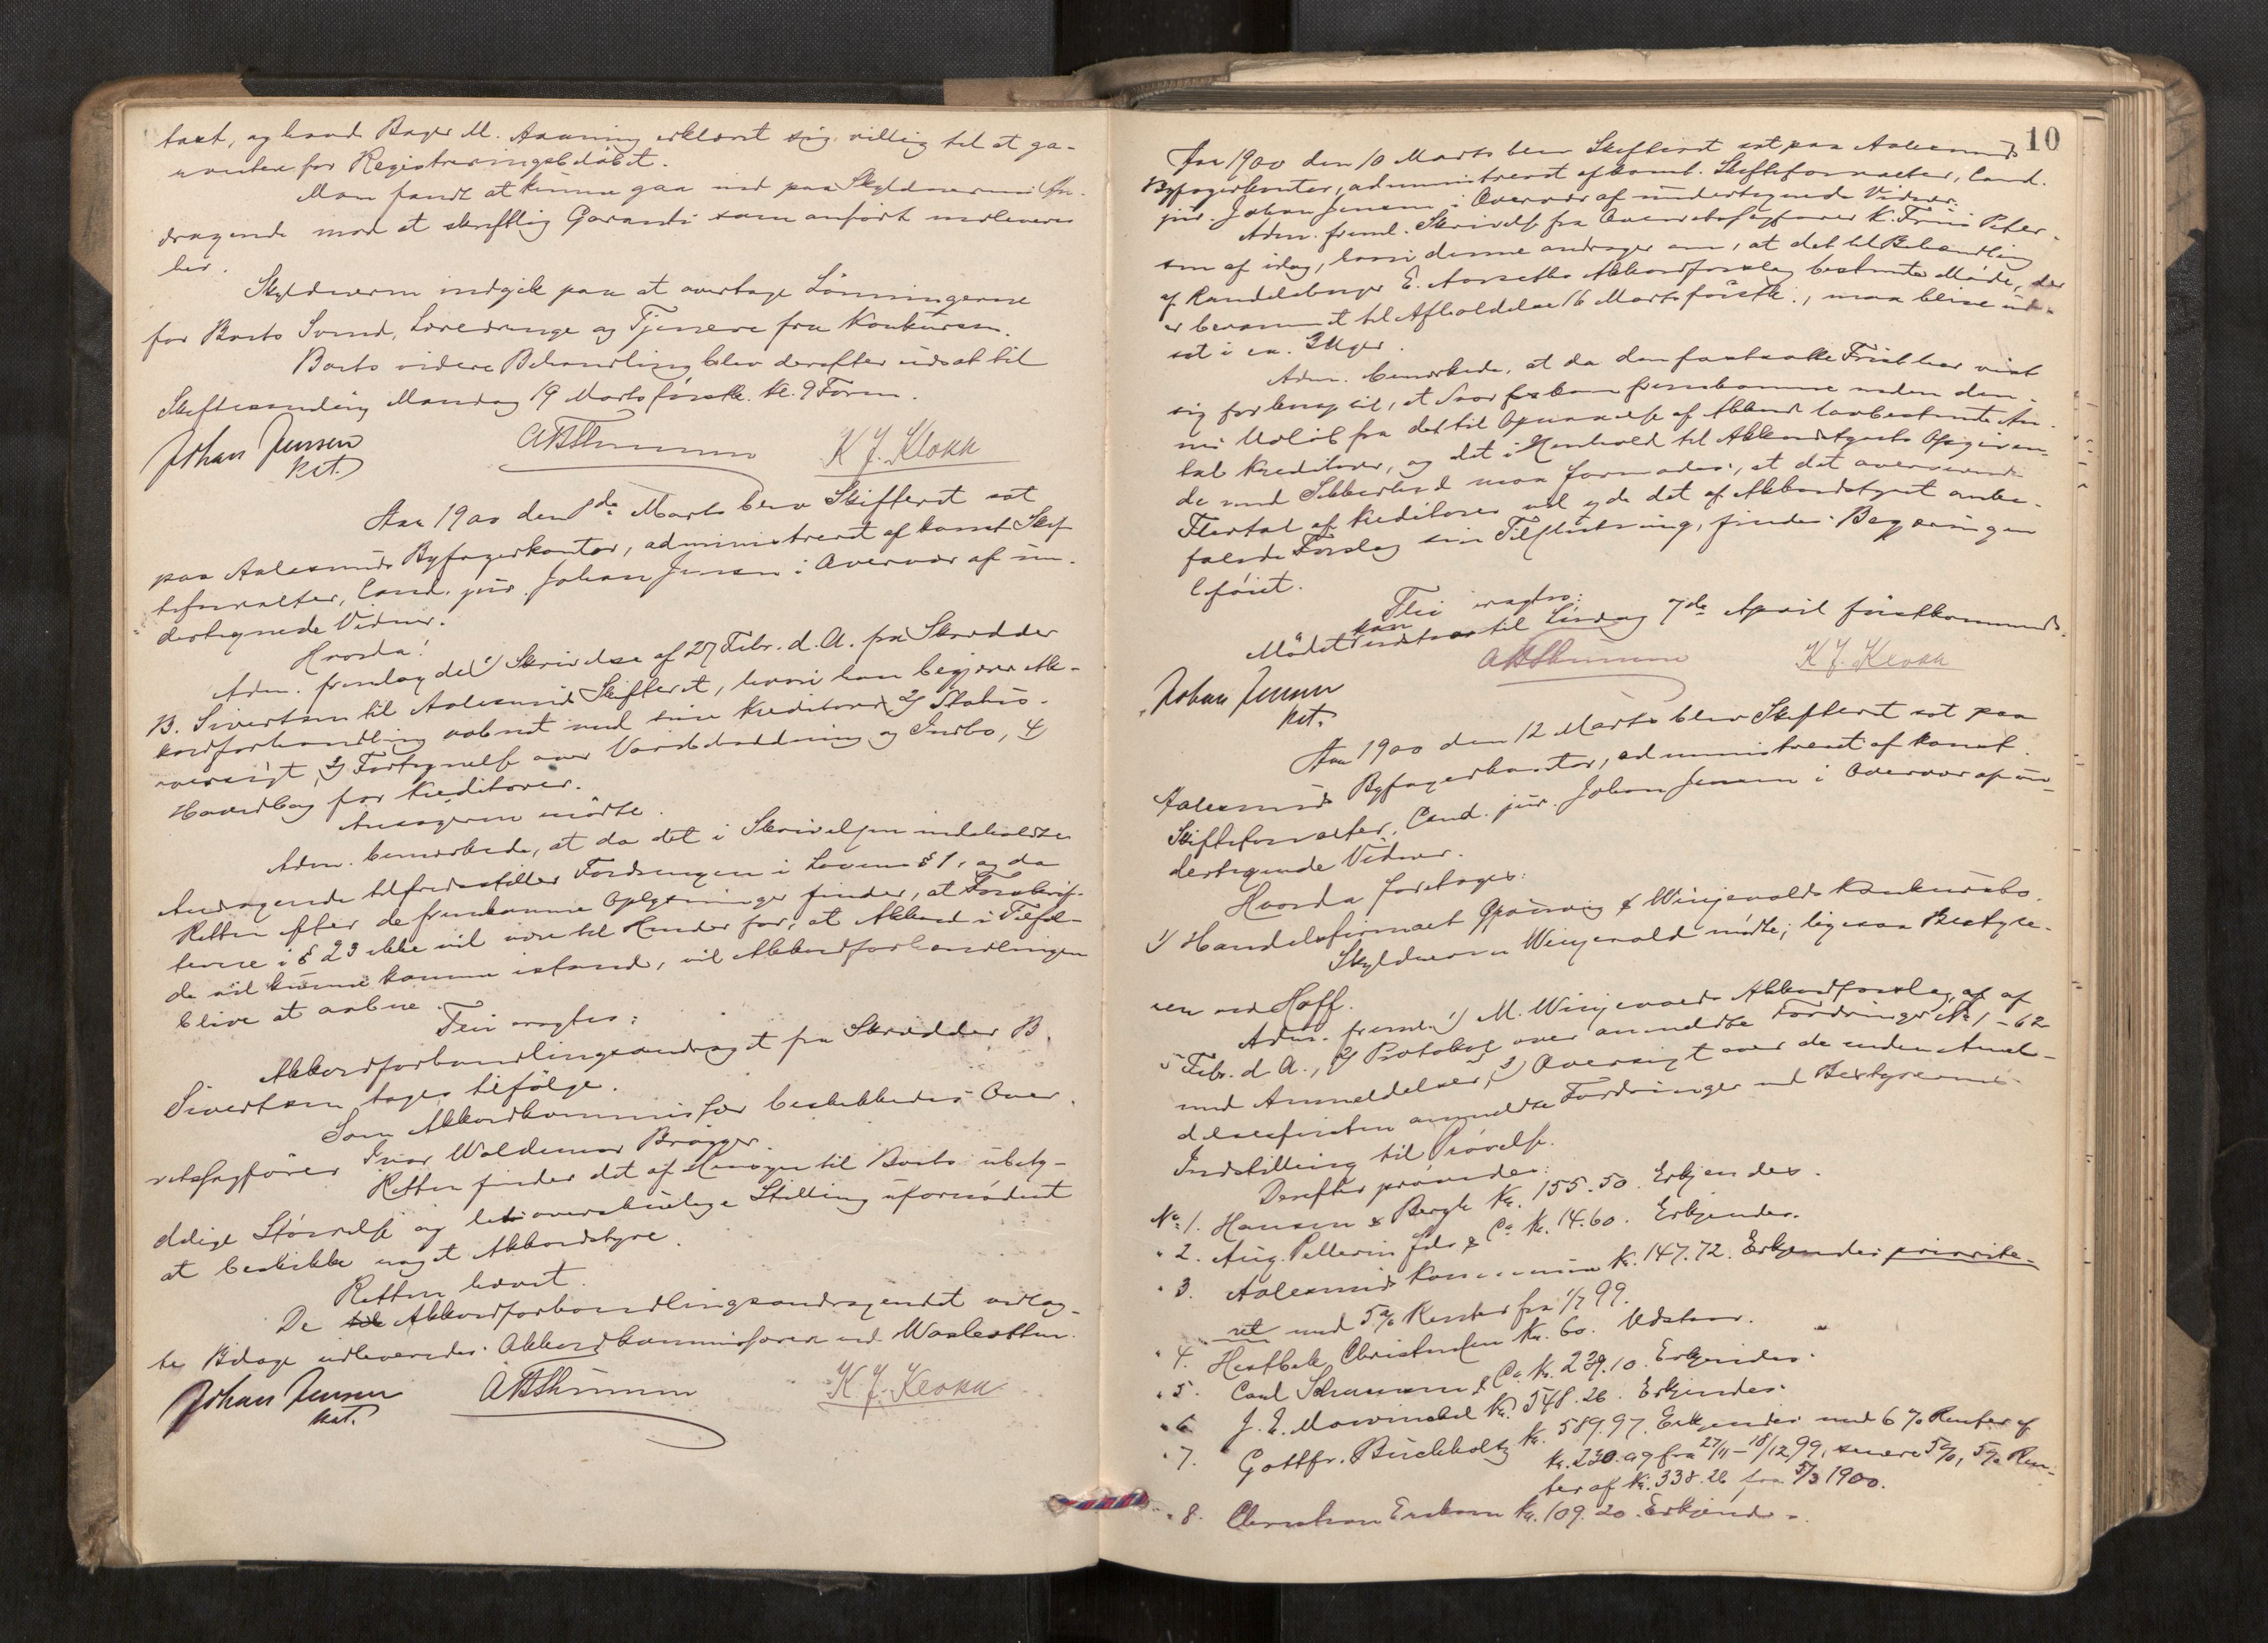 taxt, og havde Bager M. Aarning erklæret sig villig til at ga-
rantere for Registreringsbeløbet.
Man fandt at kunne gaa ind paa Skyldnerens An-
dragende mod at skriftlig Garanti som anført indleveres
her.
Skyldneren indgik paa at overtage Lønningerne
for Boets Svend, Læredrenge og Tjenere fra Konkursen.
Boets videre Behandling blev derefter udsat til
Skiftesamling Mandag 19 Marts førstk. Kl. 9 Form.
Johan Jensen
kst.
K J. Klokk
Aar 1900 den 1de Marts blev Skifteret sat
paa Aalesunds Byfogerkontor, administreret af konst. Skif-
teforvalter, Cand. jur. Johan Jensen i Overvær af un-
dertegnede Vidner.
Hvorda:
Adm. fremlagde 1) Skrivelse af 27 Febr. d. A. fra Skrædder
B. Sivertsen til Aalesunds Skifteret, hvori han begjærer Ak-
kordforhandling aabnet med sine Kreditorer 2) Status-
oversigt, 3) Fortegnelse over Varebeholdning og Indbo, 4)
Hovedbog for Kreditorer.
Ansøgeren mødte.
Adm. bemærkede, at da det i Skrivelsen indeholdte
Andragende tilfredsstiller Fordringen i Lovens § 1, og da
Retten efter de fremkomne Oplysninger finder, at Forskrif-
terne i § 23 ikke vil være til Hinder for, at Akkord i Tilfæl-
de vil kunne komme istand, vil Akkordforhandlingen
blive at aabne.
Thi eragtes:
Akkordforhandlingsandraget fra Skrædder B.
Sivertsen tages tilfølge.
Som Akkordkommissær beskikkedes Over-
retssagfører Ivar Waldemar Brøgger.
Retten finder det af Hensyn til Boets ubety-
delige Størrelse og let overskuelige Stilling ufornødent
at beskikke noget Akkordstyre.
Retten hævet.
De Akkordforhandlingsandragendet vedlag-
te Bilage udleveredes Akkordkommissæren ved
Johan Jensen
kst.
K. J. Klokk
10
Aar 1900 den 10 Marts blev Skifteret sat paa Aalesunds
Byfogerkontor, administreret af konst. Skifteforvalter, Cand.
jur. Johan Jensen i Overvær af undertegnede Vidner.
Adm. freml. Skrivelse fra Overretssagfører K. Friis Peter-
sen af idag, hvori denne andrager om, at det til Behandling
af Randelsborger E. Aarseths Akkordforslag bestemte Møde, der
er berammet til Afholdelse 16 Marts førstk., maa blive ud-
sat i ca. 3 Uger.
Adm. bemærkede, at da den fastsatte Frist har vist
sig for knap til, at Svar kan fremkomme inden den-
nes Udløb fra det til Opnaaelse af Akkord lovbestemte An-
tal Kreditorer, og det i Henhold til Akkordstyrets Opgiven-
de med Sikkerhed maa formodes, at det overveiende
Flertal af Kreditorer vil yde det af Akkordstyret anbe-
falede Forslag sin Tilslutning, findes Begjæringen
beføiet.
Thi eragtes:
Mødet kan udsættes til Lørdag 7de April førstkommende.
K J. Klokk
Johan Jensen
kst.
Aar 1900 den 12 Marts blev Skifteret sat paa
Aalesunds Byfogerkontor, administreret af konst.
Skifteforvalter, Cand. jur. Johan Jensen i Overvær af un-
dertegnede Vidner.
Hvorda foretages:
1) Handelsfirmaet Gjørvig & Wingevolds Konkursbo.
Skyldneren Wingevold mødte; ligesaa Bestyre-
ren ved Hoff.
Adm. freml. 1) M. Wingevolds Akkordforslag af
5 Febr. d. A., 2) Protokol over anmeldte Fordringer No 1-62
med Anmeldelser, 3) Oversigt over de inden Anmel-
delsesfristen anmeldte Fordringer med Bestyrerens
Indstilling til Prøvelse.
Derefter prøvedes:
No 1. Hansen & Bergh Kr. 155.50. Erkjendes.
" 2. Aug. Pellerin fils & Co Kr. 14.60. Erkjendes.
" 3. Aalesunds Kommune Kr. 147.72. Erkjendes priorite-
ret med 5% Renter fra 1/7 99.
" 4. Hestbek, Christensen Kr. 60. Udstaar.
" 5. Carl Schumann & Co Kr. 239.10. Erkjendes.
" 6. J. E. Mowinckel Kr. 548.26. Erkjendes.
" 7. Gottfr. Buchholtz Kr. 589.97. Erkjendes med 6% Renter af
Kr. 230.09 fra 27/11-18/12 99, senere 5%, 5% Ren-
ter af Kr. 338.26 fra 5/3 1900.
" 8. Christian Eriksen Kr. 109.20. Erkjendes.